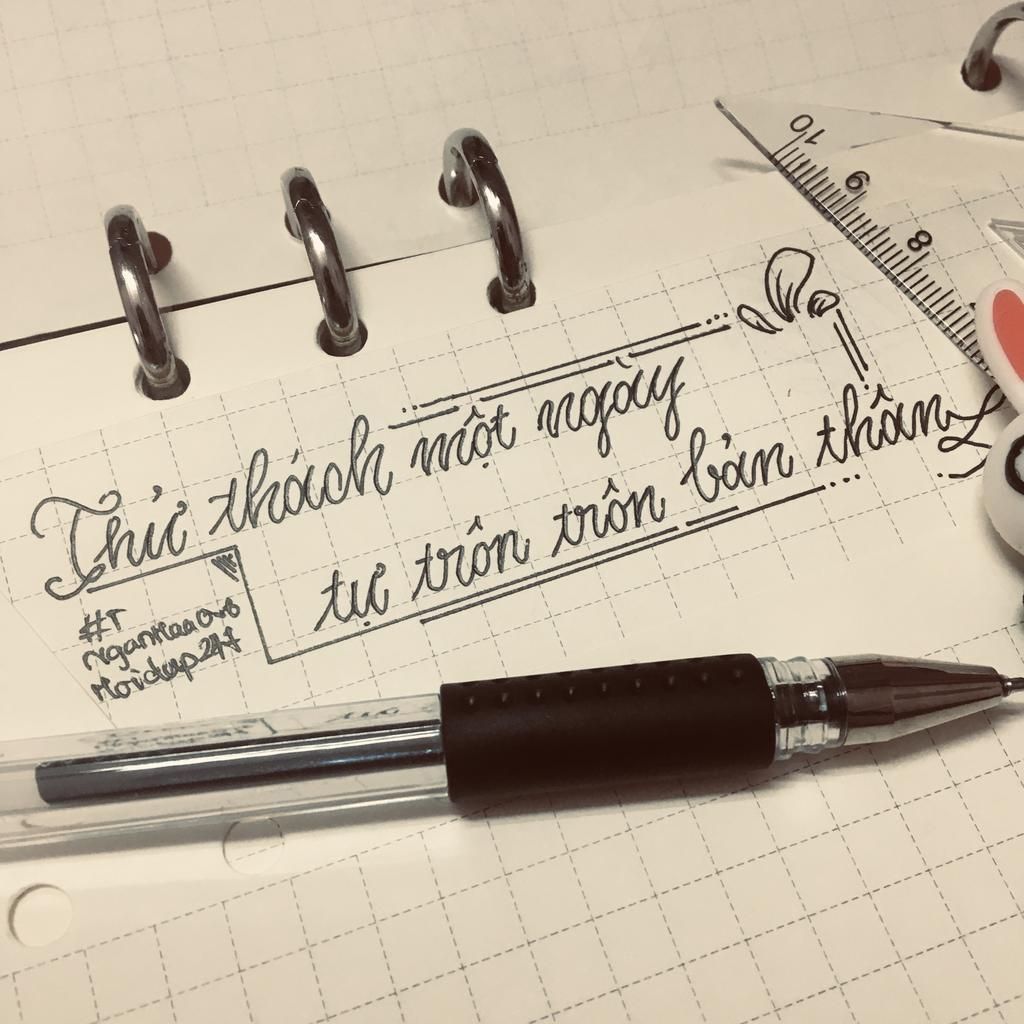 10
9
8
Thử thách một ngày
tự trôn trôn bản thân
#T